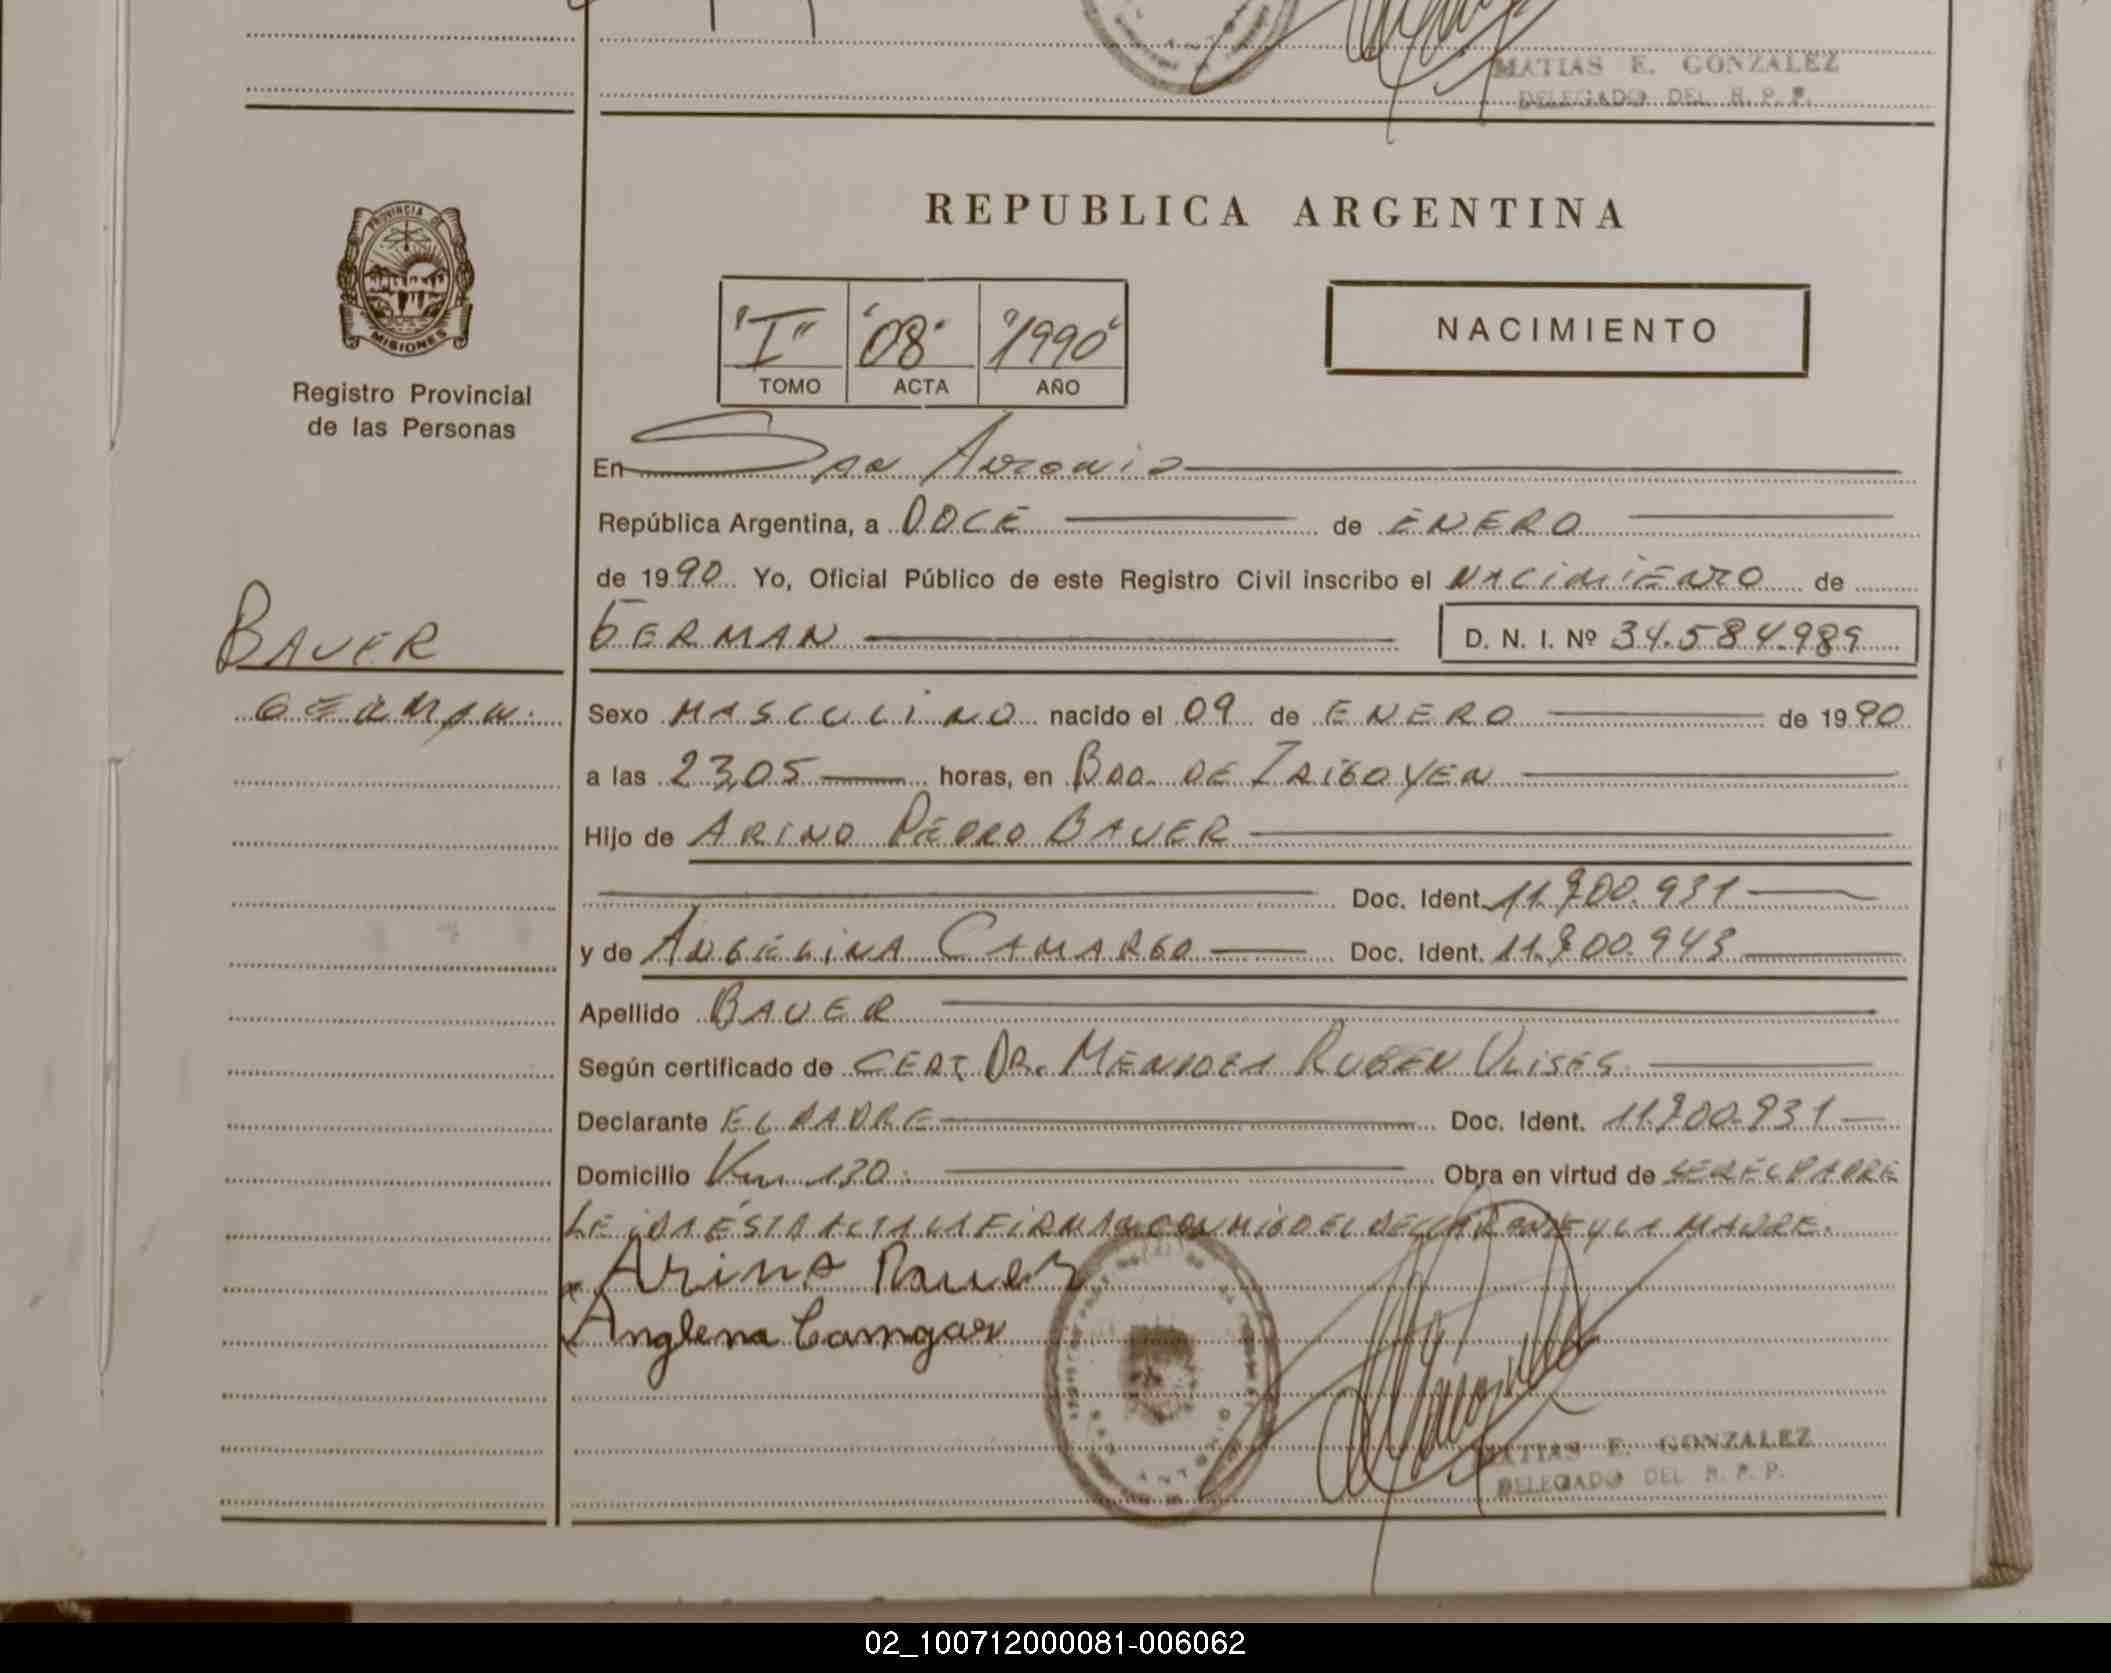 MATIAS E. GONZALEZ
DELEGADO DEL R. P. P.
PROVINCIA DE
MISIONES
Registro Provincial
de las Personas
REPUBLICA ARGENTINA
"I" "08" "1990"
TOMO ACTA AÑO
NACIMIENTO
En San Antonio
República Argentina, a DOCE de ENERO
de 1990 Yo, Oficial Público de este Registro Civil inscribo el NACIMIENTO de
BAUER
GERMAN D. N. I. Nº 34.584.989
GERMAN.
Sexo MASCULINO nacido el 09 de ENERO de 1990
a las 23,05 horas, en BDO. DE IRIGOYEN
Hijo de ARINO PEDRO BAUER
Doc. Ident. 11.900.931
y de ANGELINA CAMARGO Doc. Ident. 11.900.943
Apellido BAUER
Según certificado de CERT. DR. MENDOZA RUBEN ULISES
Declarante EL PADRE Doc. Ident. 11.900.931
Domicilio Km 130. Obra en virtud de SER EL PADRE
LEIDA ESTA ACTA LA FIRMAN CONMIGO EL DECLARANTE Y LA MADRE.
x Arino Bauer
x Anglena Camgar
SAN ANTONIO
MATIAS E. GONZALEZ
DELEGADO DEL R. P. P.
02_100712000081-006062